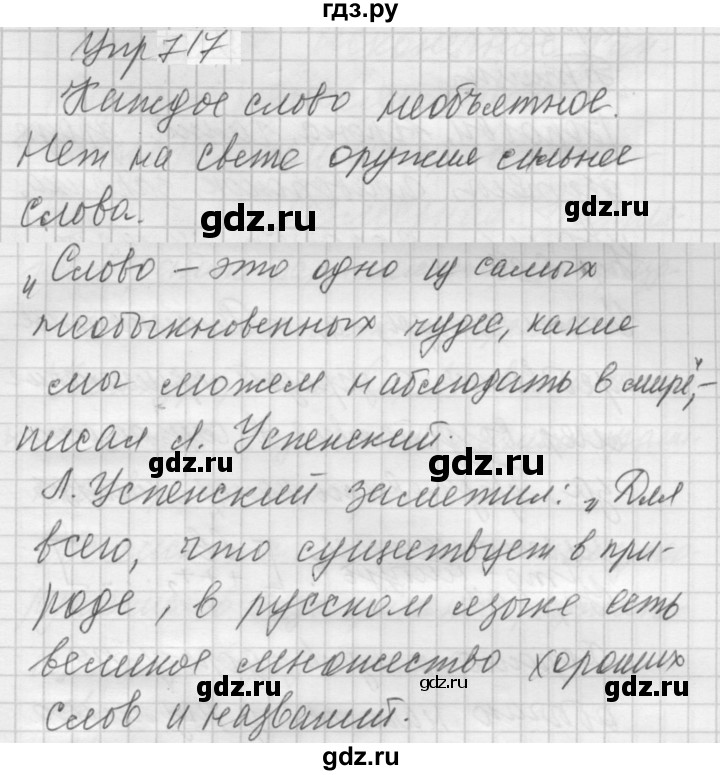 гдз.ру
Упр 717
Каждое слово необъятное.
Нет на свете оружия сильнее
слова.
gdz.ru
gdz.ru
„Слово – это одно из самых
необыкновенных чудес, какие
мы можем наблюдать в мире“, –
писал Л. Успенский.
gdz.ru
gdz.ru
Л. Успенский заметил: „Для
всего, что существует в при-
роде, в русском языке есть
великое множество хороших
gdz.ru
gdz.ru
gdz.ru
слов и названий.
gdz.ru